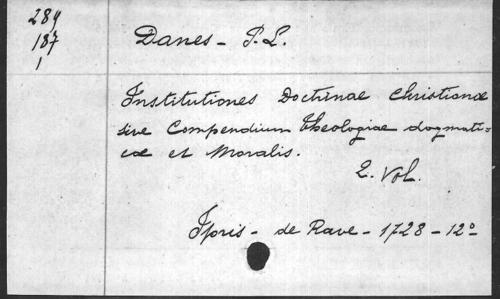 289
187
1
Danes - P. L.
Institutiones Doctrinae Christianae
sive Compendium Theologiae dogmati-
cae et Moralis.
2. Vol.
Ipris - de Rave - 1728 - 12°